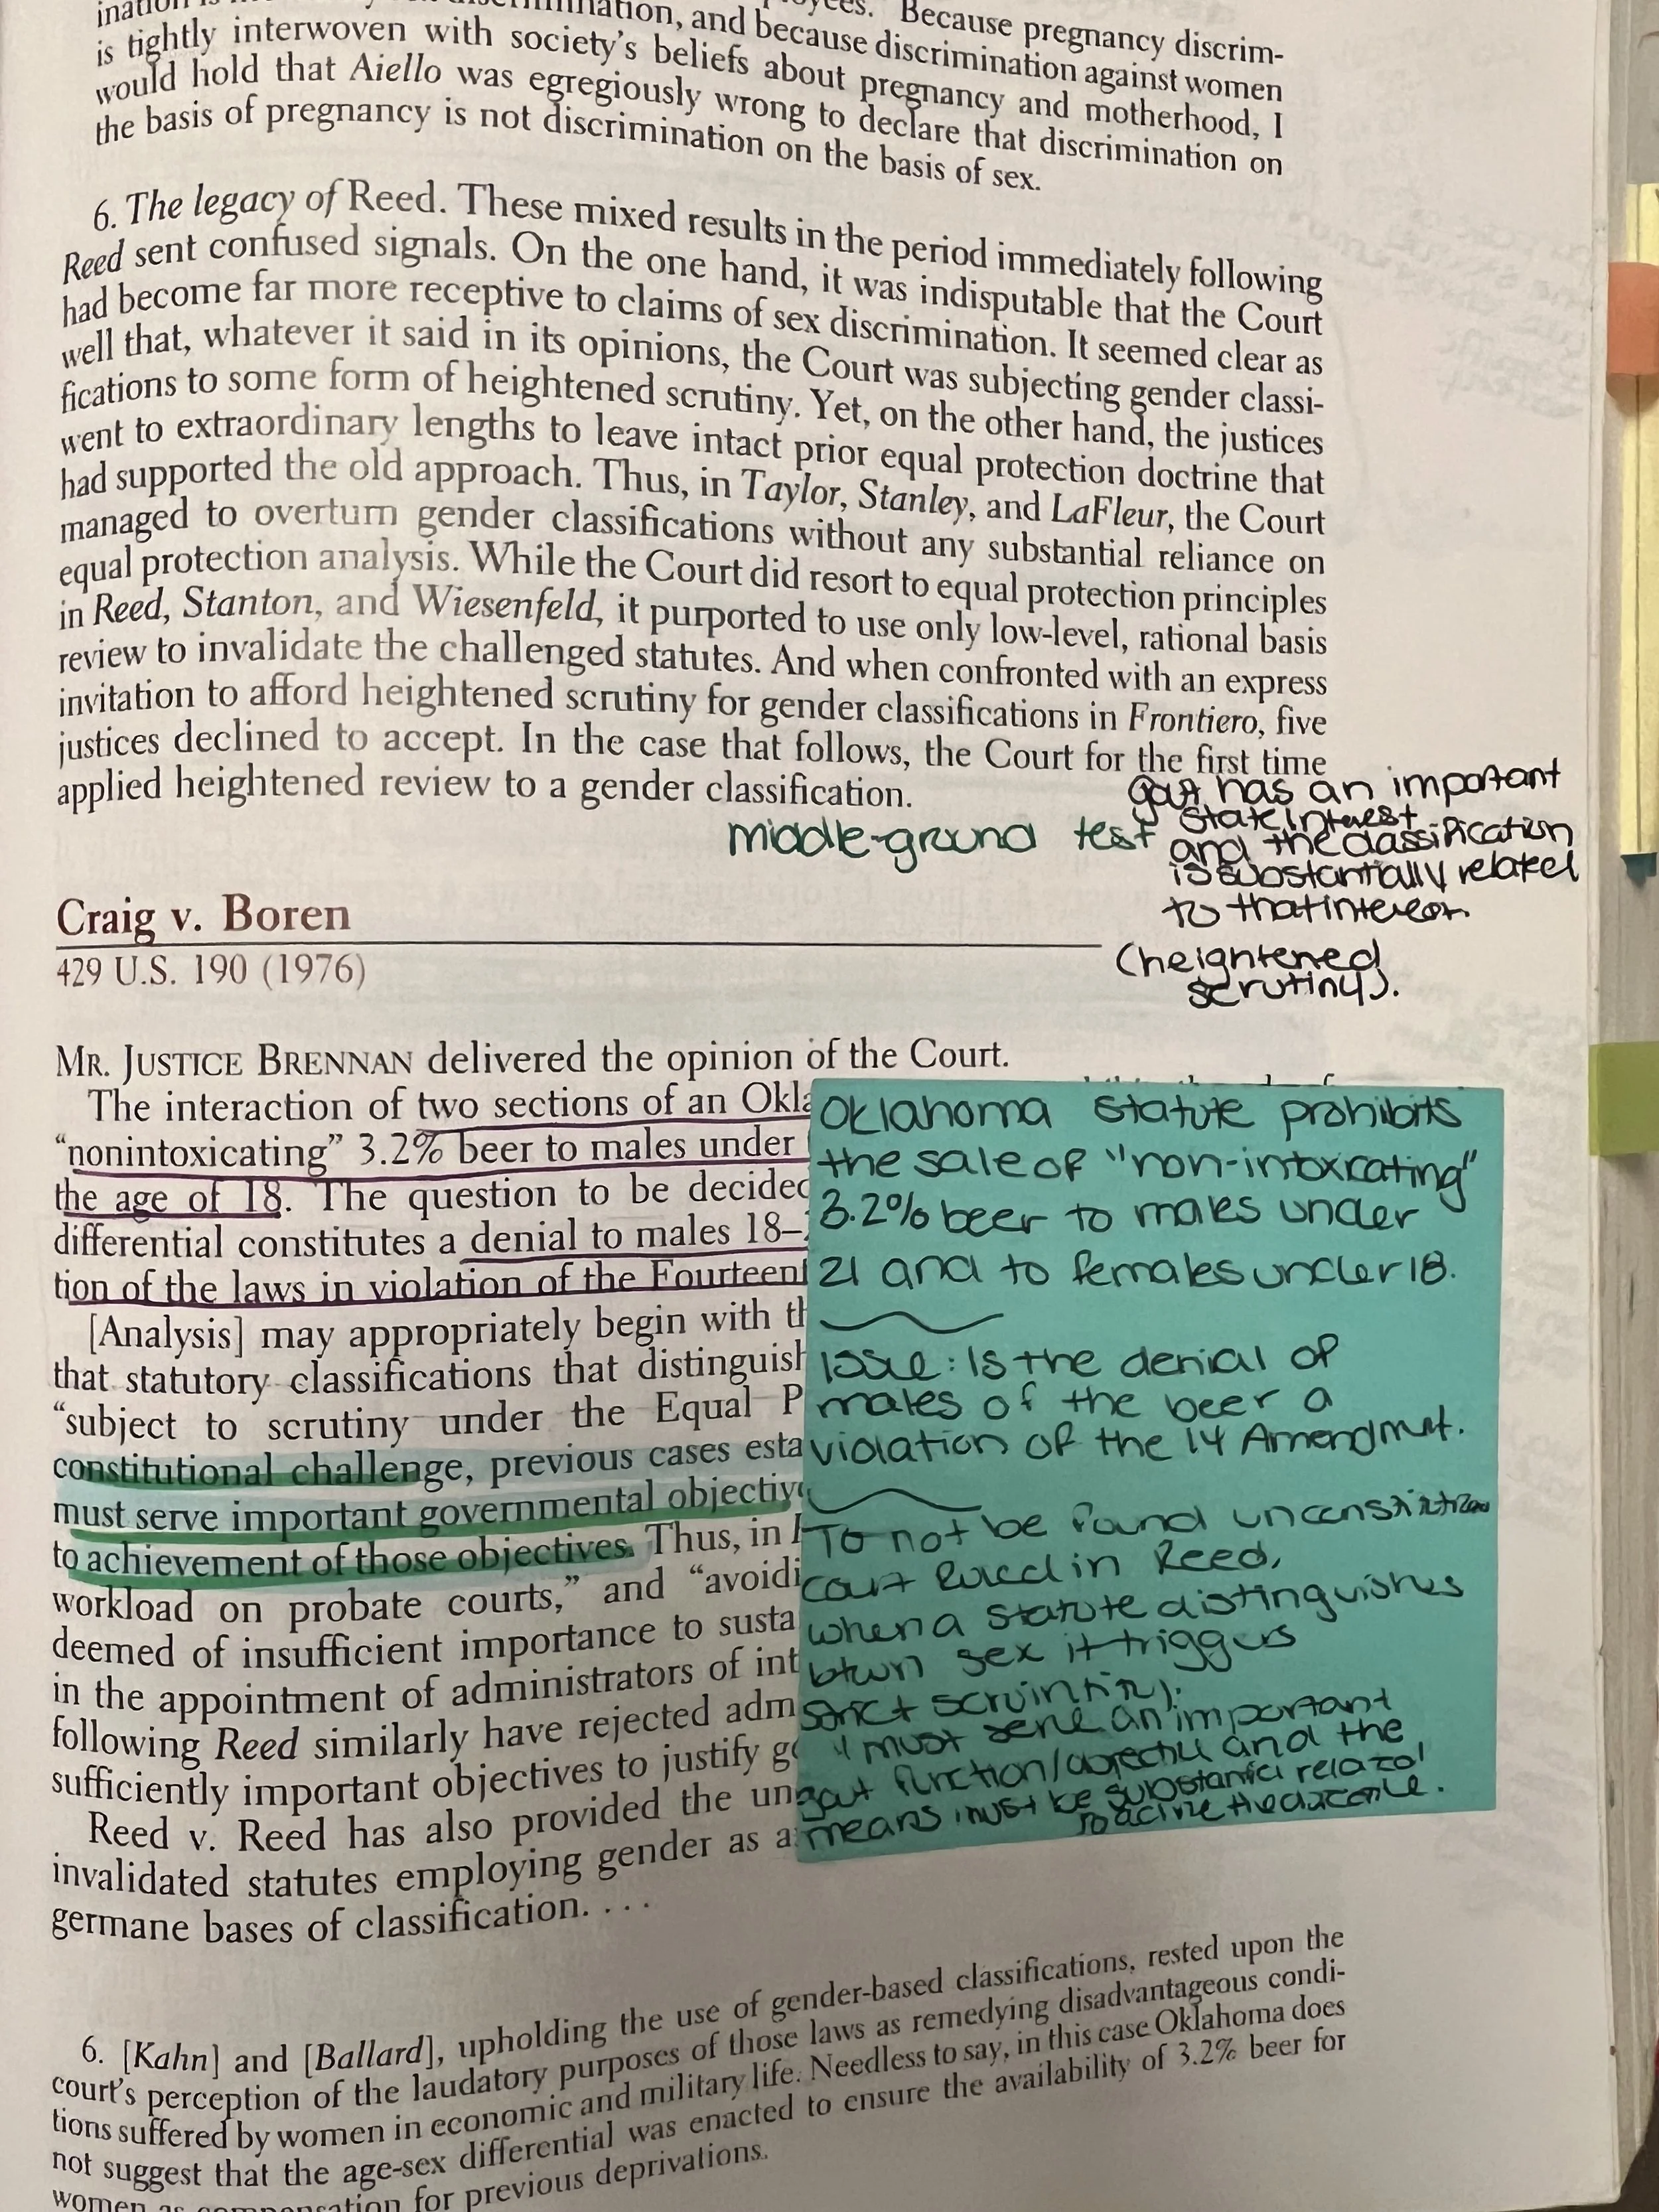 ination is
discrimination, and because discrimination against women
is tightly interwoven with society's beliefs about pregnancy and motherhood, I
would hold that Aiello was egregiously wrong to declare that discrimination on
the basis of pregnancy is not discrimination on the basis of sex.
Because pregnancy discrim-
6. The legacy of Reed. These mixed results in the period immediately following
Reed sent confused signals. On the one hand, it was indisputable that the Court
had become far more receptive to claims of sex discrimination. It seemed clear as
well that, whatever it said in its opinions, the Court was subjecting gender classi-
fications to some form of heightened scrutiny. Yet, on the other hand, the justices
went to extraordinary lengths to leave intact prior equal protection doctrine that
had supported the old approach. Thus, in Taylor, Stanley, and LaFleur, the Court
managed to overturn gender classifications without any substantial reliance on
equal protection analysis. While the Court did resort to equal protection principles
in Reed, Stanton, and Wiesenfeld, it purported to use only low-level, rational basis
review to invalidate the challenged statutes. And when confronted with an express
invitation to afford heightened scrutiny for gender classifications in Frontiero, five
justices declined to accept. In the case that follows, the Court for the first time
applied heightened review to a gender classification.
middle-ground test
gov't has an important
state interest
and the classification
is substantially related
to that interest.
(heightened
scrutiny).
Craig v. Boren
429 U.S. 190 (1976)
MR. JUSTICE BRENNAN delivered the opinion of the Court.
The interaction of two sections of an Okla
"nonintoxicating" 3.2% beer to males under
the age of 18. The question to be decided
differential constitutes a denial to males 18–
tion of the laws in violation of the Fourteent
[Analysis] may appropriately begin with th
that statutory classifications that distinguish
"subject to scrutiny under the Equal P
constitutional challenge, previous cases esta
must serve important governmental objectiv
to achievement of those objectives. Thus, in
workload on probate courts," and "avoidi
deemed of insufficient importance to susta
in the appointment of administrators of int
following Reed similarly have rejected adm
sufficiently important objectives to justify g
Reed v. Reed has also provided the un
invalidated statutes employing gender as a
germane bases of classification. . . .
Oklahoma statute prohibits
the sale of "non-intoxicating"
3.2% beer to males under
21 and to females under 18.
Issue: Is the denial of
males of the beer a
violation of the 14 Amendment.
To not be found
court ruled in Reed,
when a statute distinguishes
btwn sex it triggers
strict
must serve an important
function/ and the
means must be related
6. [Kahn] and [Ballard], upholding the use of gender-based classifications, rested upon the
court's perception of the laudatory purposes of those laws as remedying disadvantageous condi-
tions suffered by women in economic and military life. Needless to say, in this case Oklahoma does
not suggest that the age-sex differential was enacted to ensure the availability of 3.2% beer for
women as compensation for previous deprivations.